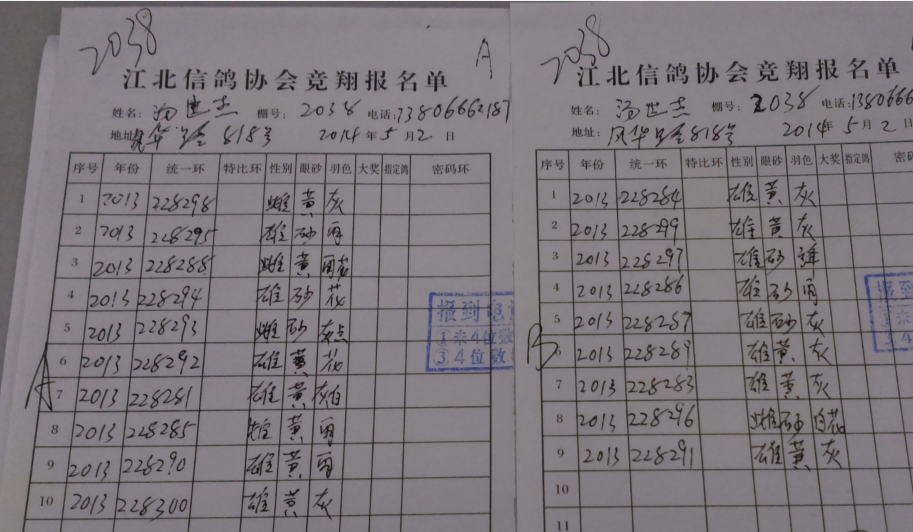 2038
A
江北信鸽协会竞翔报名单
姓名: 汤世杰 棚号: 2038 电话: 13806662187
地址: 风华路818号 2014年5月2日
序号 年份 统一环 特比环 性别 眼砂 羽色 大奖 指定鸽 密码环
1 2013 228298 雌 黄 灰
2 2013 228295 雄 砂 雨
3 2013 228288 雌 黄 雨花
4 2013 228294 雄 砂 花
5 2013 228293 雌 砂 灰点
6 2013 228292 雄 黄 花
7 2013 228281 雄 黄 灰白
8 2013 228285 雄 黄 雨
9 2013 228290 雄 黄 雨
10 2013 228300 雄 黄 灰
A
报到电
①来4位数
③4位数
2038
江北信鸽协会竞翔报名单
姓名: 汤世杰 棚号: 2038 电话: 13806666
地址: 风华路818号 2014年5月2日
序号 年份 统一环 特比环 性别 眼砂 羽色 大奖 指定鸽 密码
1 2013 228284 雄 黄 灰
2 2013 228299 雄 黄 灰
3 2013 228297 雄 砂
4 2013 228286 雄 砂 雨
5 2013 228287 雄 砂 灰
6 2013 228289 雄 黄 灰
7 2013 228283 雄 黄 灰
8 2013 228296 雌 砂 白花
9 2013 228291 雄 黄 灰
10
11
B
报到
①来
③4